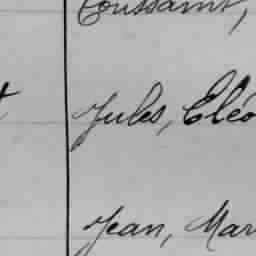 Toussaint,
Jules, Eléo
Jean, Mar